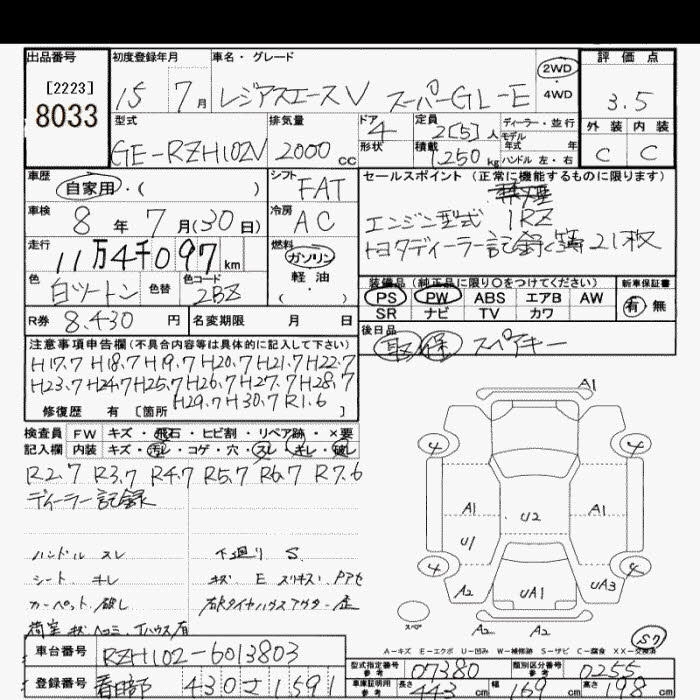 出品番号
[2223]
8033
初度登録年月
15 7月
車名・グレード
レジアスエースV スーパーGL-E
2WD
4WD
評価点
3.5
外装 内装
C C
型式
GE-RZH102V
排気量
2000cc
ドア
4
形状
定員
2[5]人
積載
1250kg
ディーラー・並行
モデル
年式 年
ハンドル 左・右
車歴
自家用・( )
シフト
FAT
車検
8年7月(30日)
冷房
AC
走行
11万4千097km
燃料
ガソリン
軽油
( )
色
白ツートン
色替
色コード
2BZ
R券 8.430円
名変期限 月 日
セールスポイント(正常に機能するものに限ります)
禁煙
エンジン型式 1RZ
トヨタディーラー記録簿21枚
装備品(純正品に限り〇をつけてください)
PS PW ABS エアB AW
SR ナビ TV カワ
新車保証書
有 無
後日品
取 保 スペアキー
注意事項申告欄(不具合内容等は具体的に記入して下さい)
H17.7 H18.7 H19.7 H20.7 H21.7 H22.7
H23.7 H24.7 H25.7 H26.7 H27.7 H28.7
H29.7 H30.7 R1.6
修復歴 有 [箇所 ]
検査員 FW キズ・飛石・ヒビ割・リペア跡・×要
記入欄 内装 キズ・汚レ・コゲ・穴・スレ・キレ・破レ
R2.7 R3.7 R4.7 R5.7 R6.7 R7.6
ディーラー記録
ハンドル スレ 下廻り S
シート キレ キズ E
カーペット 破し
A1
4 4
A1 A1
U2
U1
4 4
A2 UA1 UA3
スペア
A2 A2
S7
A-キズ E-エクボ U-凹み W-補修跡 S-サビ C-腐食 XX-交換済
車台番号 RZH102-6013803
型式指定番号
参考
07380
類別区分番号
参考
0255
登録番号 春日部 430 さ 1591
車庫証明用
参考
長さ 443cm 幅 169cm 高さ 198cm